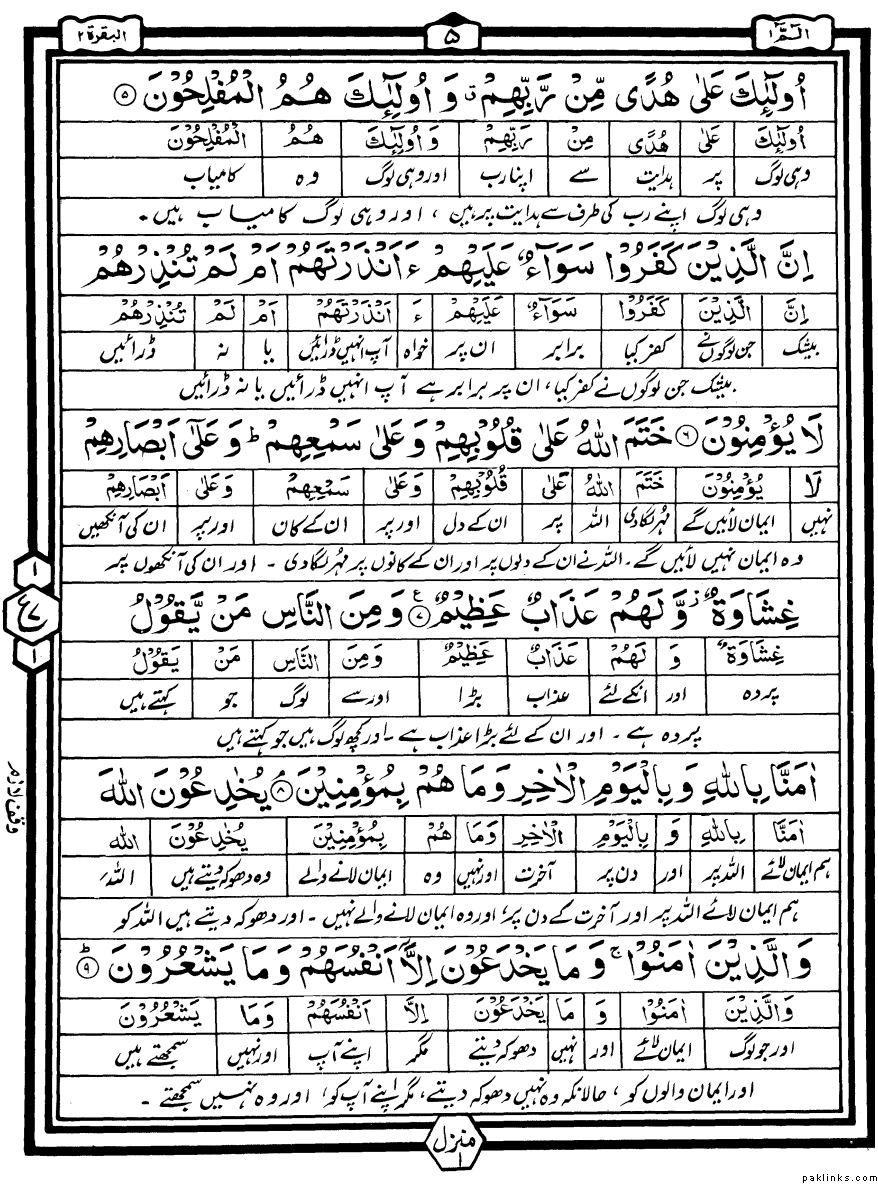 الٓمّٓ ١ ۵ البقرة ٢
اُولٰٓئِكَ عَلٰى هُدًى مِّنْ رَّبِّهِمْ ۗ وَ اُولٰٓئِكَ هُمُ الْمُفْلِحُوْنَ ۝۵
اُولٰٓئِكَ عَلٰى هُدًى مِنْ رَبِّهِمْ وَ اُولٰٓئِكَ هُمُ الْمُفْلِحُوْنَ
وہی لوگ پر ہدایت سے اپنا رب اور وہی لوگ وہ کامیاب
وہی لوگ اپنے رب کی طرف سے ہدایت پر ہیں ، اور وہی لوگ کامیاب ہیں ۔
اِنَّ الَّذِيْنَ كَفَرُوْا سَوَآءٌ عَلَيْهِمْ ءَاَنْذَرْتَهُمْ اَمْ لَمْ تُنْذِرْهُمْ
اِنَّ الَّذِيْنَ كَفَرُوْا سَوَآءٌ عَلَيْهِمْ ءَ اَنْذَرْتَهُمْ اَمْ لَمْ تُنْذِرْهُمْ
بیشک جن لوگوں نے کفر کیا برابر ان پر خواہ آپ انہیں ڈرائیں یا نہ ڈرائیں
بیشک جن لوگوں نے کفر کیا، ان پر برابر ہے آپ انہیں ڈرائیں یا نہ ڈرائیں
لَا يُؤْمِنُوْنَ ۝٦ خَتَمَ اللّٰهُ عَلٰى قُلُوْبِهِمْ وَعَلٰى سَمْعِهِمْ ؕ وَعَلٰٓى اَبْصَارِهِمْ
لَا يُؤْمِنُوْنَ خَتَمَ اللّٰهُ عَلٰى قُلُوْبِهِمْ وَعَلٰى سَمْعِهِمْ وَعَلٰى اَبْصَارِهِمْ
نہیں ایمان لائیں گے مہر لگادی اللہ پر ان کے دل اور پر ان کے کان اور پر ان کی آنکھیں
وہ ایمان نہیں لائیں گے۔ اللہ نے ان کے دلوں پر اور ان کے کانوں پر مہر لگادی ۔ اور ان کی آنکھوں پر
١
ع ٧
١
غِشَاوَةٌ ؗ وَّلَهُمْ عَذَابٌ عَظِيْمٌ ۝٧ وَمِنَ النَّاسِ مَنْ يَّقُوْلُ
غِشَاوَةٌ وَ لَهُمْ عَذَابٌ عَظِيْمٌ وَمِنَ النَّاسِ مَنْ يَقُوْلُ
پردہ اور انکے لئے عذاب بڑا اور سے لوگ جو کہتے ہیں
پردہ ہے ۔ اور ان کے لئے بڑا عذاب ہے ۔ اور کچھ لوگ ہیں جو کہتے ہیں
اٰمَنَّا بِاللّٰهِ وَبِالْيَوْمِ الْاٰخِرِ وَمَا هُمْ بِمُؤْمِنِيْنَ ۝٨ يُخٰدِعُوْنَ اللّٰهَ
اٰمَنَّا بِاللّٰهِ وَ بِالْيَوْمِ الْاٰخِرِ وَمَا هُمْ بِمُؤْمِنِيْنَ يُخٰدِعُوْنَ اللّٰه
ہم ایمان لائے اللہ پر اور دن پر آخرت اور نہیں وہ ایمان لانے والے وہ دھوکہ دیتے ہیں اللہ
ہم ایمان لائے اللہ پر اور آخرت کے دن پر، اور وہ ایمان لانے والے نہیں ۔ اور دھوکہ دیتے ہیں اللہ کو
وقف لازم
وَالَّذِيْنَ اٰمَنُوْا ۚ وَمَا يَخْدَعُوْنَ اِلَّآ اَنْفُسَهُمْ وَمَا يَشْعُرُوْنَ ۝٩ؕ
وَالَّذِيْنَ اٰمَنُوْا وَ مَا يَخْدَعُوْنَ اِلَّا اَنْفُسَهُمْ وَمَا يَشْعُرُوْنَ
اور جو لوگ ایمان لائے اور نہیں دھوکہ دیتے مگر اپنے آپ اور نہیں سمجھتے ہیں
اور ایمان والوں کو ، حالانکہ وہ نہیں دھوکہ دیتے، مگر اپنے آپ کو، اور وہ نہیں سمجھتے ۔
منزل ١
paklinks.com